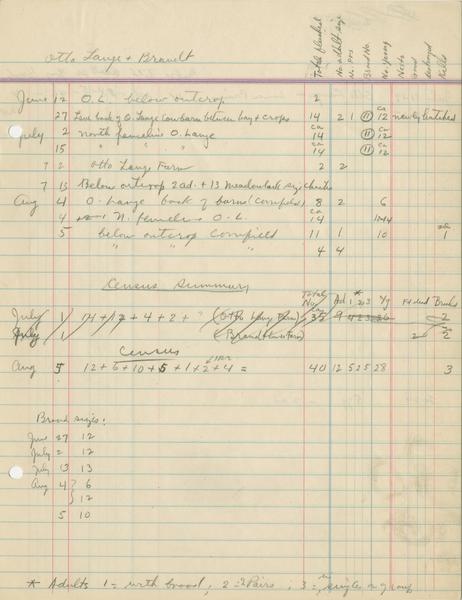 Otto Lange + Brandt
Total flushed
No. adult size
No. prs
Brood No.
No. young
Nests
found
destroyed
Kills
June 12 O.L. below outcrop 2
27 Lane back of O. Lange cow barn between hay + crops 14 2 1 11 ca 12 newly hatched
July 2 north fenceline O. Lange ca 14 11 ca 12
15 " " " ca 14 11 ca 12
7 2 Otto Lange Farm 2 2
7 13 Below outcrop 2 ad. + 13 Meadowlark size chicks
Aug 4 O. Lange back of barn (cornfield) 8 2 6
4 N. fenceline O.L. ca 14
5 below outcrop cornfield 11 1 10 1
" " 4 4
Census Summary
Total No. Ad 1 2 3 Yg Broods
July 1 14 + 12 + 4 + 2 + ? (Otto Lange Farm) 35 9 2
July 1 (Brandt Farm) 2
Census
Aug 5 12 + 6 + 10 + 5 + 1 + 2 + 4 = 40 12 5 2 5 28 3
Brood sizes:
June 27 12
July 2 12
July 13 13
Aug 4 6
12
5 10
* Adults 1 = with brood, 2 = Pairs, 3 = single or group